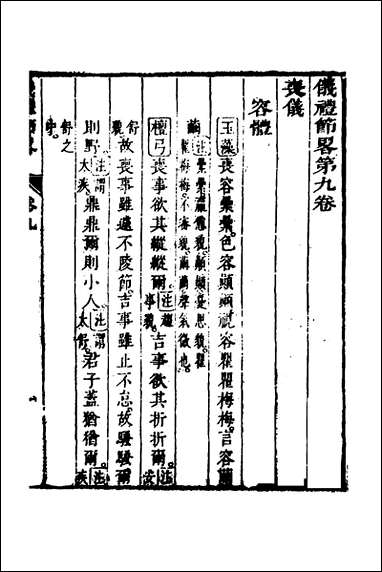 儀禮節畧第九卷
喪儀
容體
玉藻喪容纍纍色容顚顚視容瞿瞿梅梅言容繭
繭注纍纍羸憊貌顚顚憂思貌瞿瞿梅梅不審貌繭繭聲氣微也
檀弓喪事欲其縱縱爾注趨事貌吉事欲其折折爾注安
舒貌故喪事雖遽不陵節吉事雖止不怠故騷騷爾
則野注謂太疾鼎鼎爾則小人注謂太舒君子蓋猶猶爾注疾
舒之